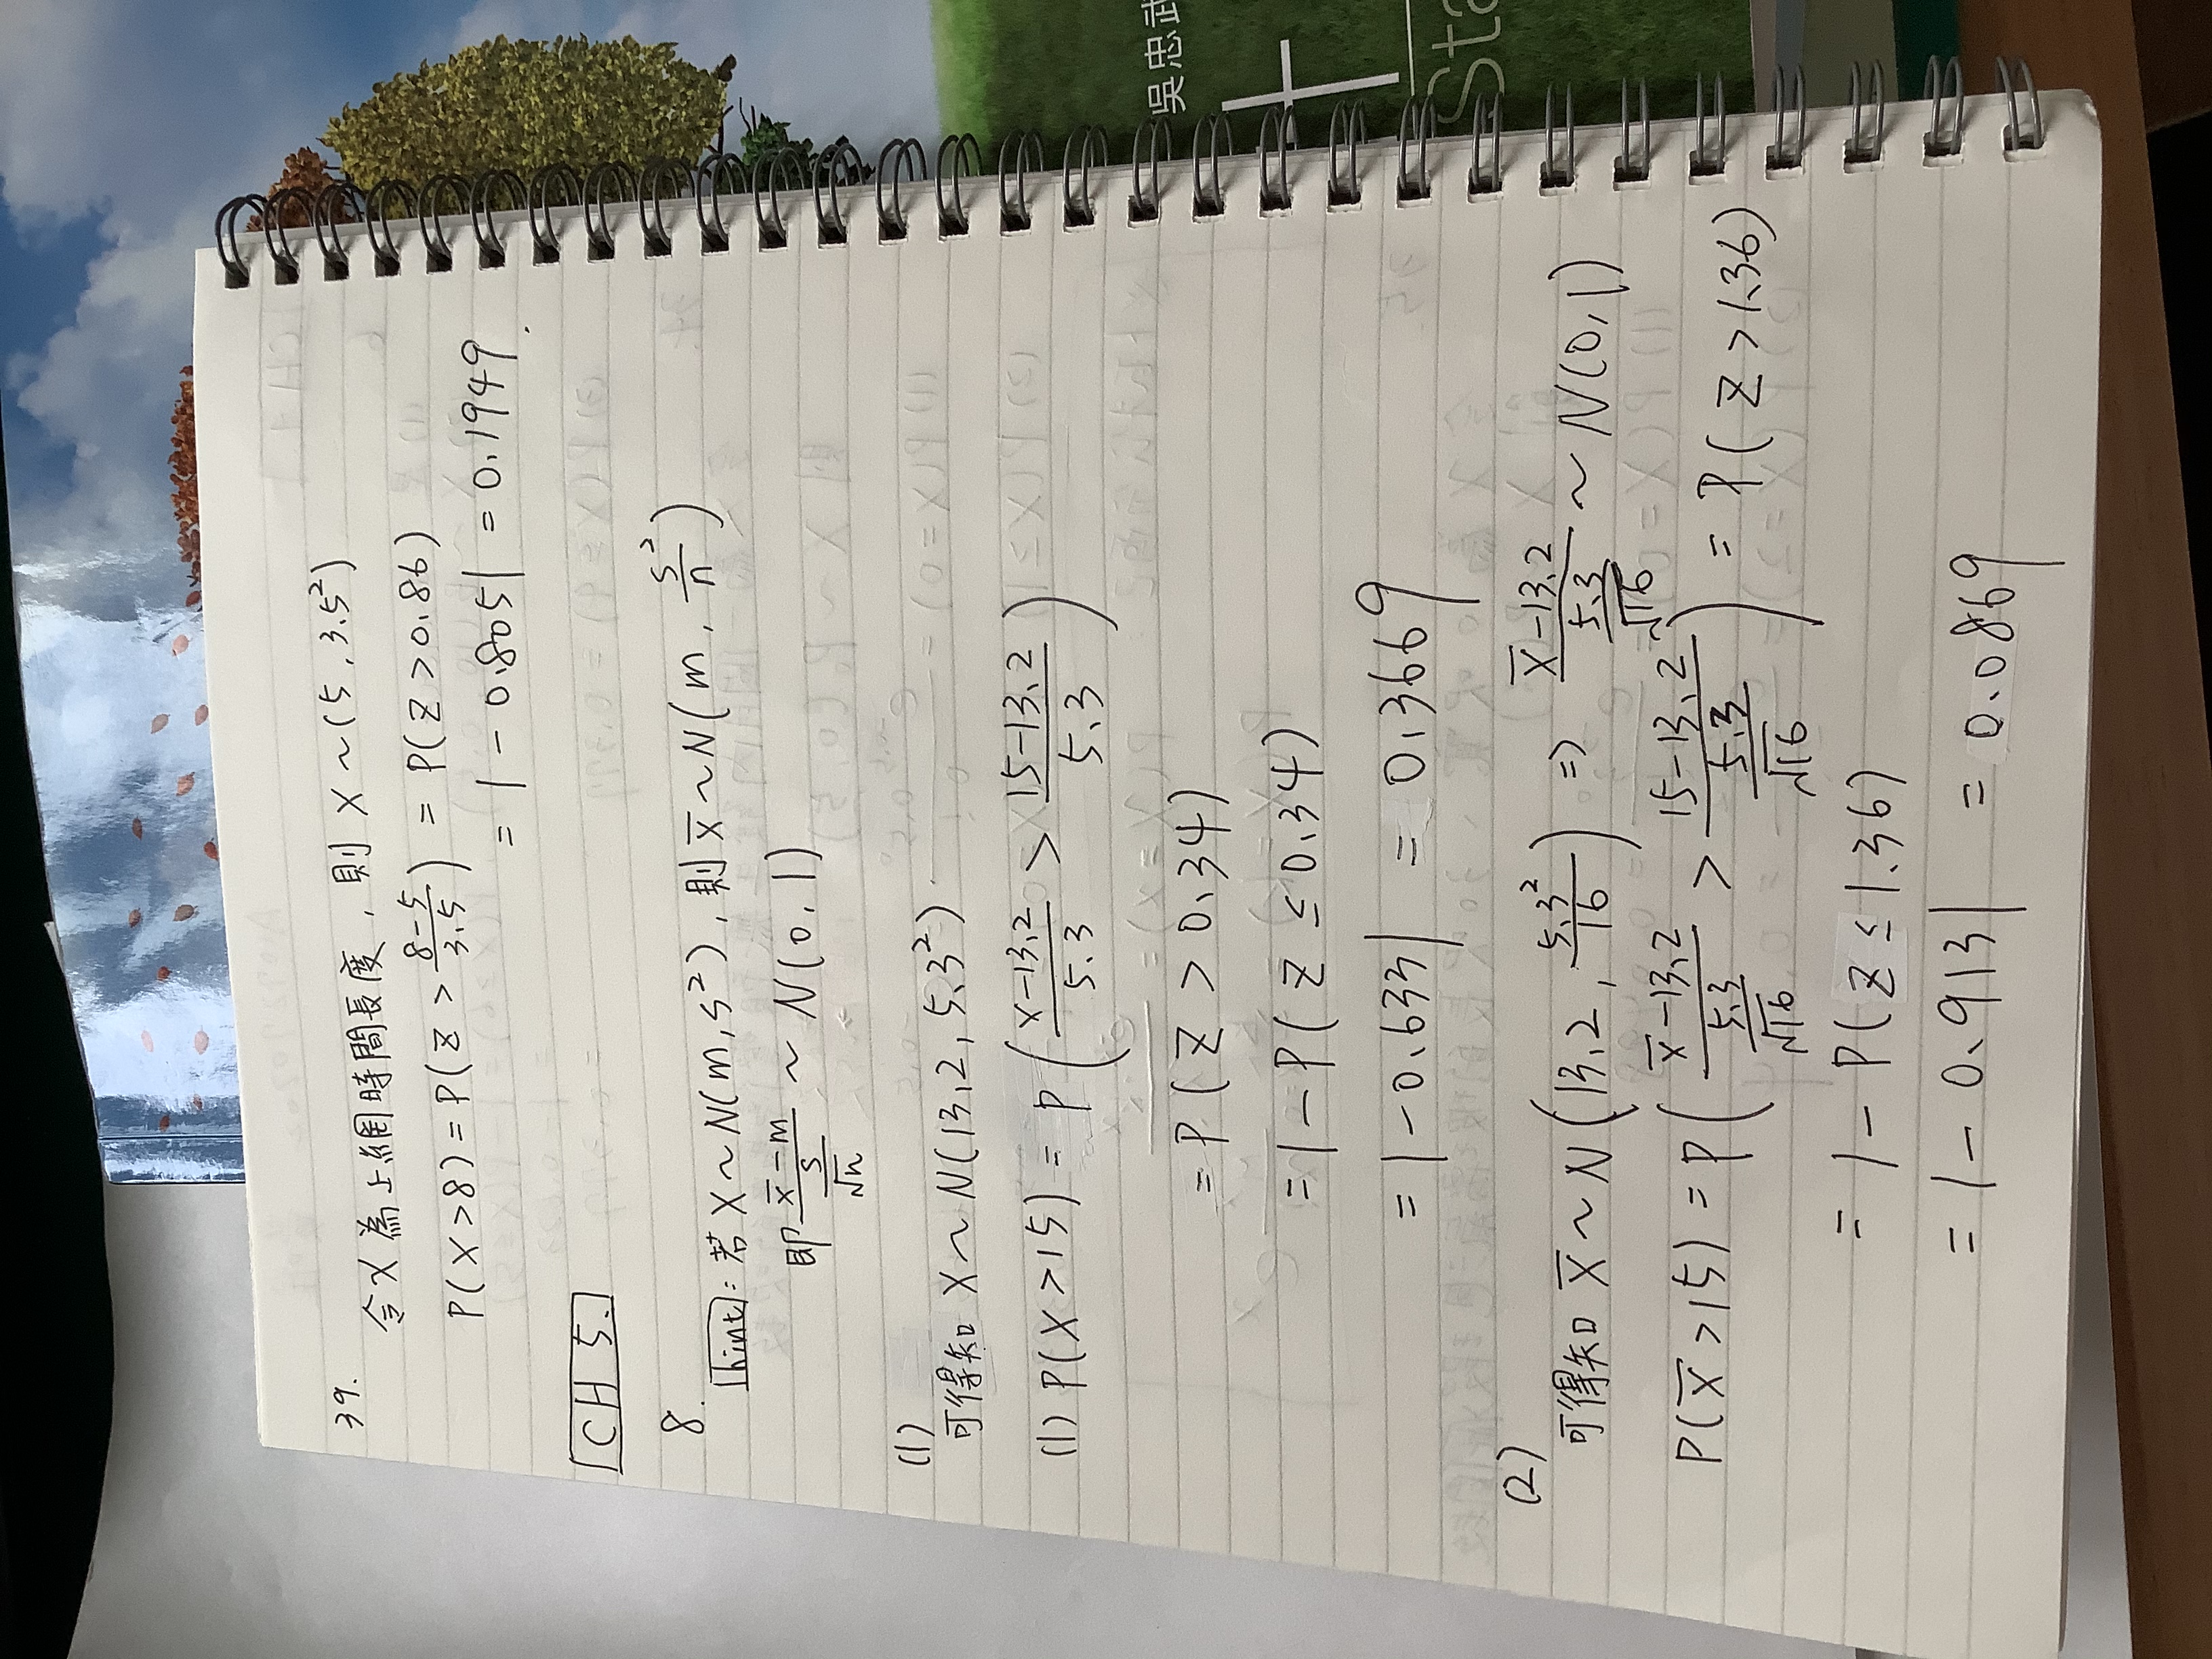 39.
令X為上網時間長度，則 X ~ (5, 3.5²)
P(X>8) = P(Z > (8-5)/3.5) = P(Z > 0.86)
= 1 - 0.8051 = 0.1949.
CH 5.
8.
hint: 若 X ~ N(m, s²), 則 X̄ ~ N(m, s²/n)
即 (X̄-m)/(s/√n) ~ N(0, 1)
(1)
可得知 X ~ N(13.2, 5.3²)
(1) P(X>15) = P((X-13.2)/5.3 > (15-13.2)/5.3)
= P(Z > 0.34)
= 1 - P(Z ≤ 0.34)
= 1 - 0.6331 = 0.3669
(2)
可得知 X̄ ~ N(13.2, 5.3²/16) => (X̄-13.2)/(5.3/√16) ~ N(0, 1)
P(X̄>15) = P((X̄-13.2)/(5.3/√16) > (15-13.2)/(5.3/√16)) = P(Z > 1.36)
= 1 - P(Z ≤ 1.36)
= 1 - 0.9131 = 0.0869
吳忠武
Sta